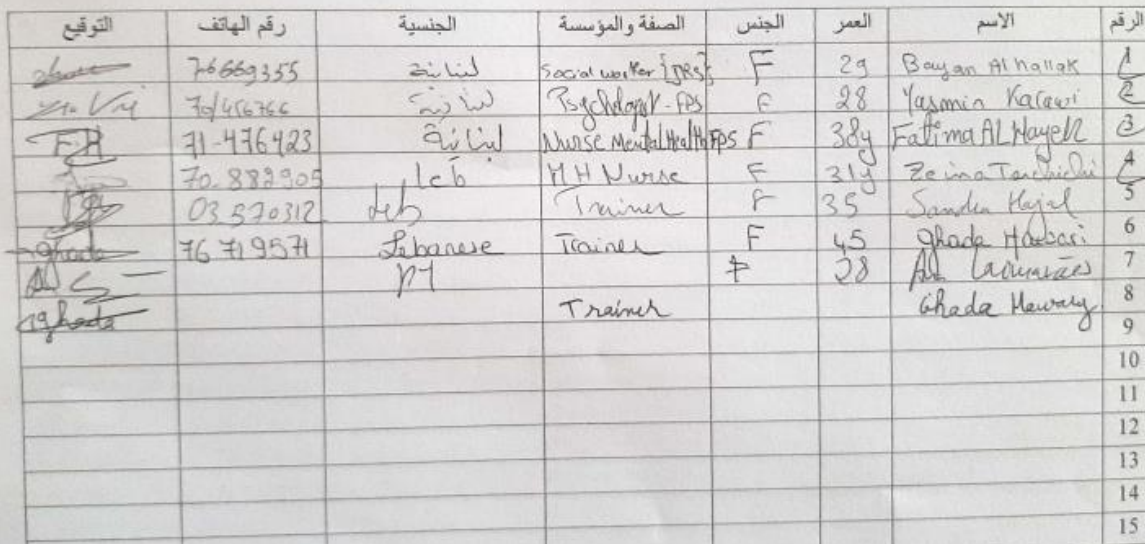 الرقم الاسم العمر الجنس الصفة والمؤسسة الجنسية رقم الهاتف التوقيع
1 Bayan Al hallak 29 F Social worker [JRS] لبنانية 76669355
2 Yasmin 28 F Psychologist - FPS لبنانية
3 Fatima AL Hayek 38y F Nurse Mental Health FPS لبنانية 71-476423 F.H
4 Zeina 31y F M H Nurse 70.882905
5 35 F Trainer leb 03 570312
6 ghada 45 F Trainer Lebanese 76 719571 ghada
7 F
8 Ghada Trainer ghada
9
10
11
12
13
14
15